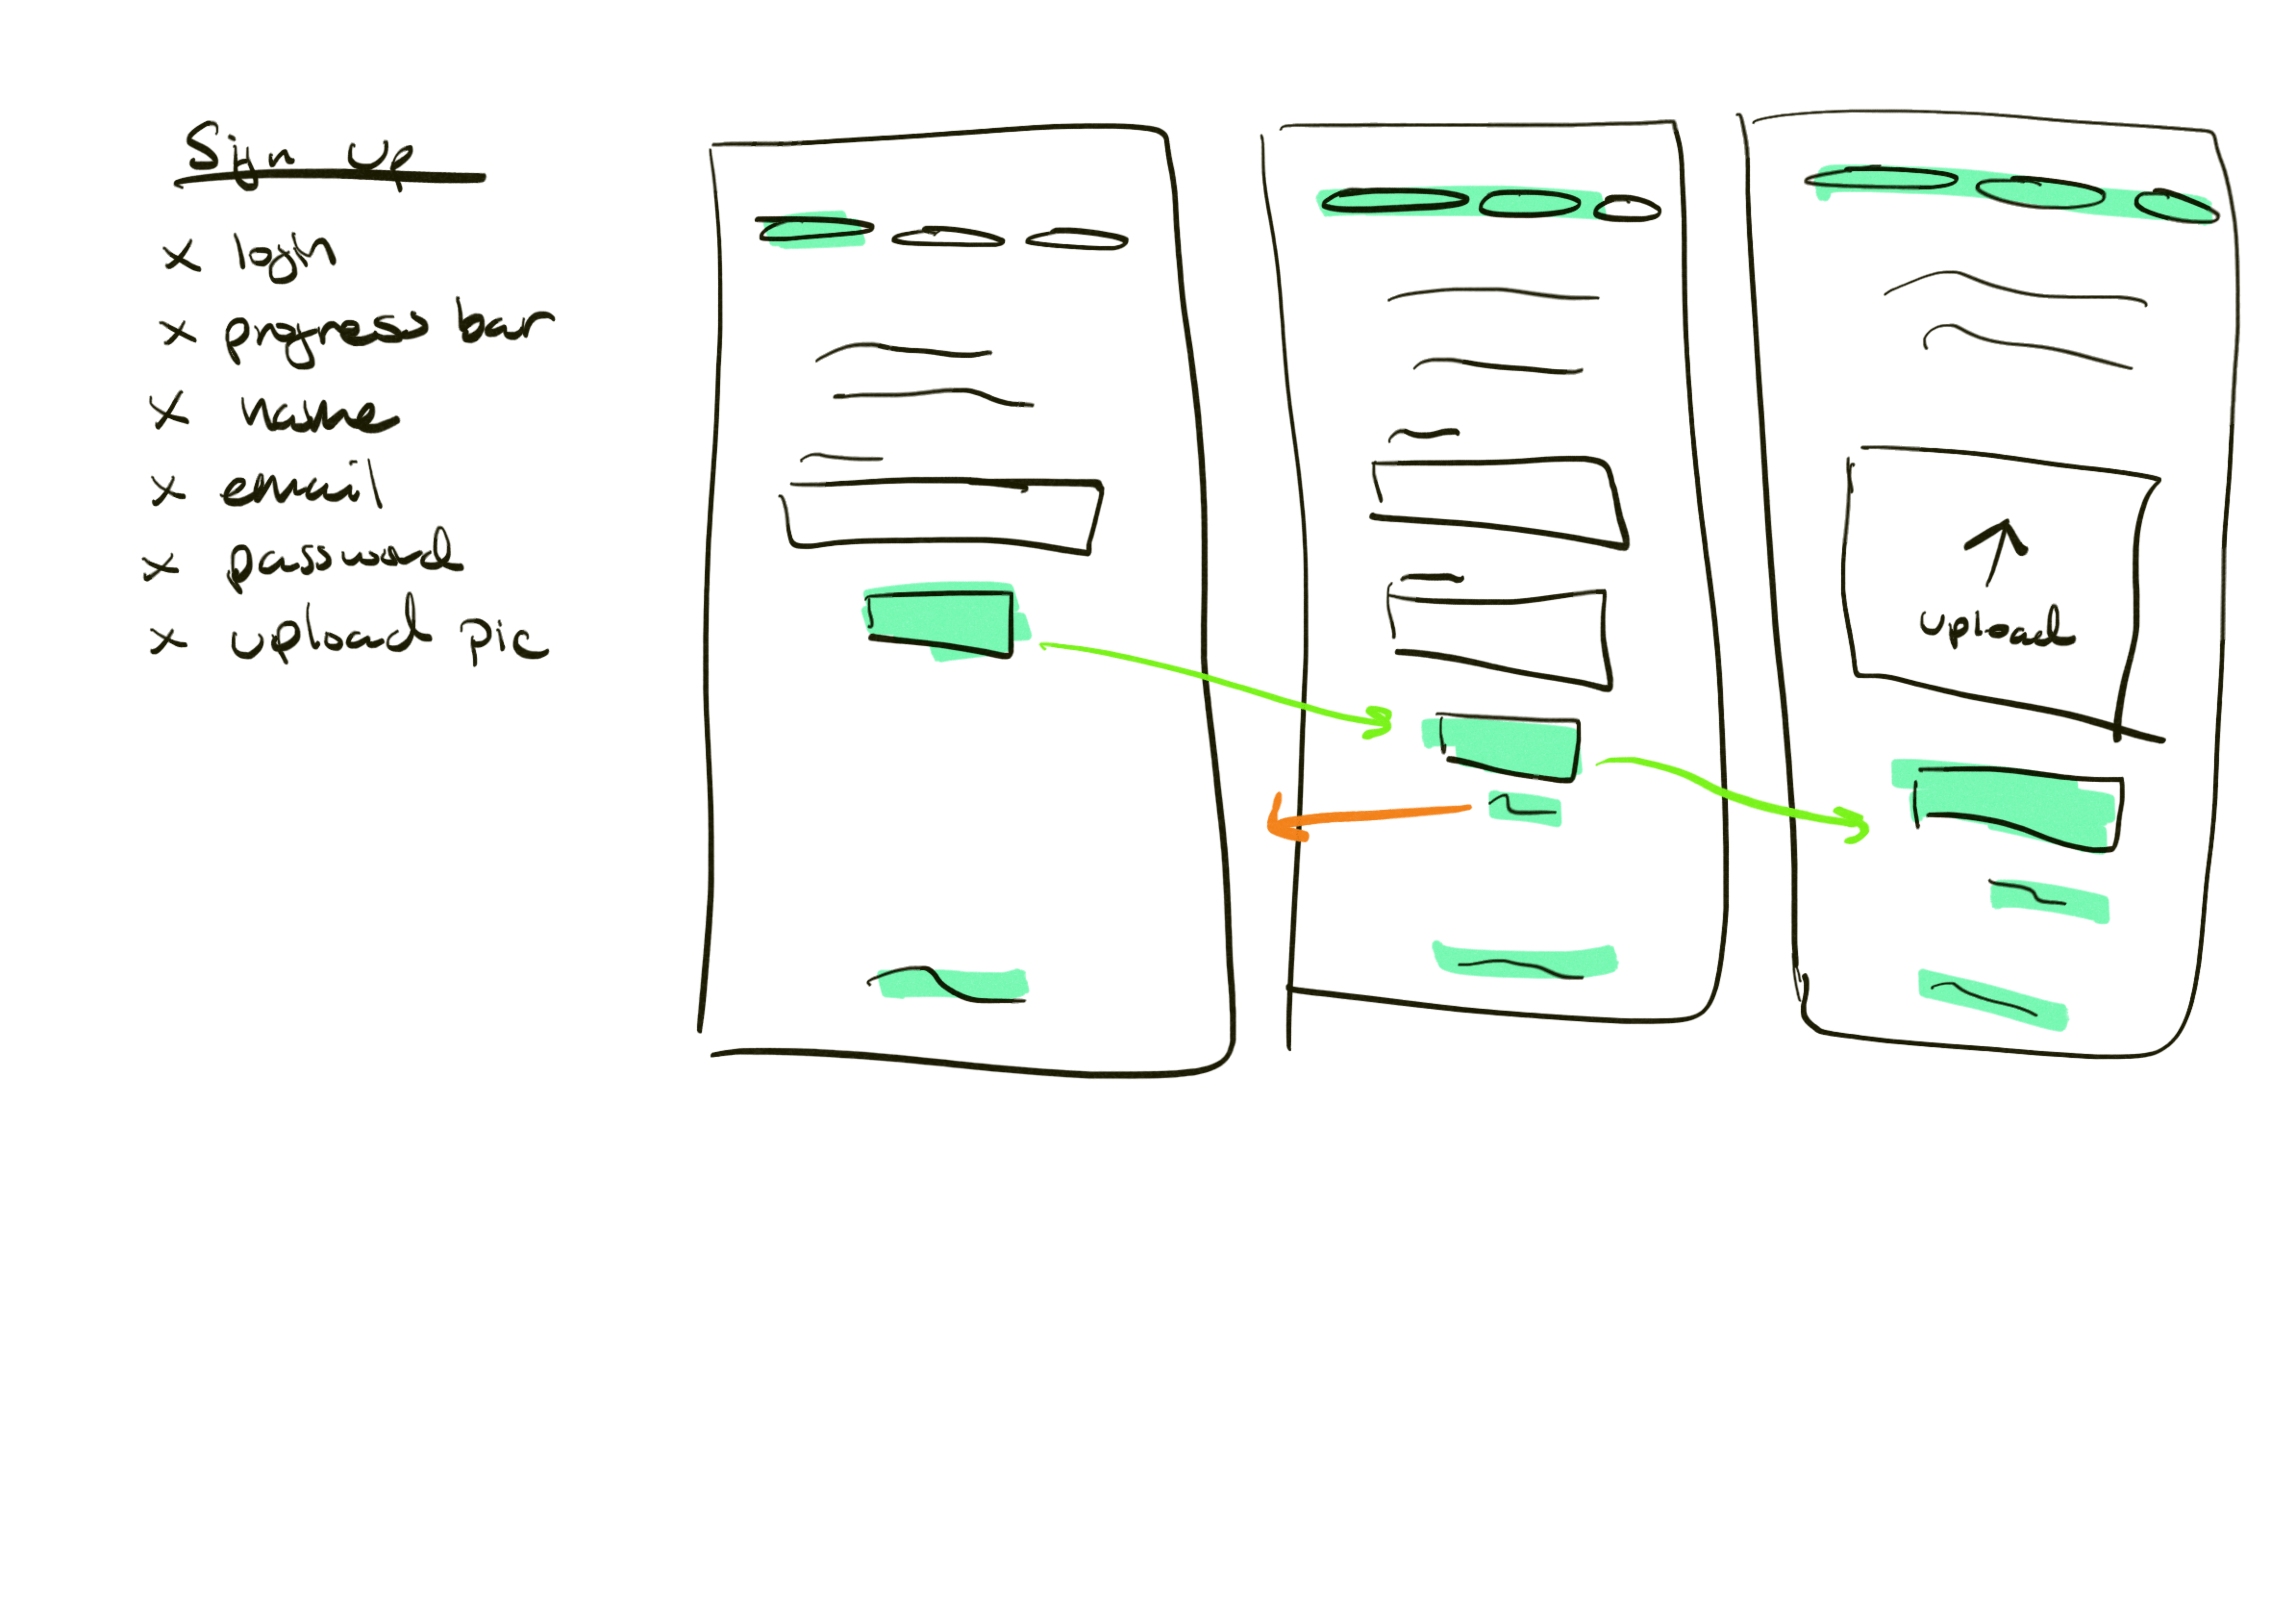 Sign up
x login
x progress bar
x name
x email
x password
x upload pic
upload